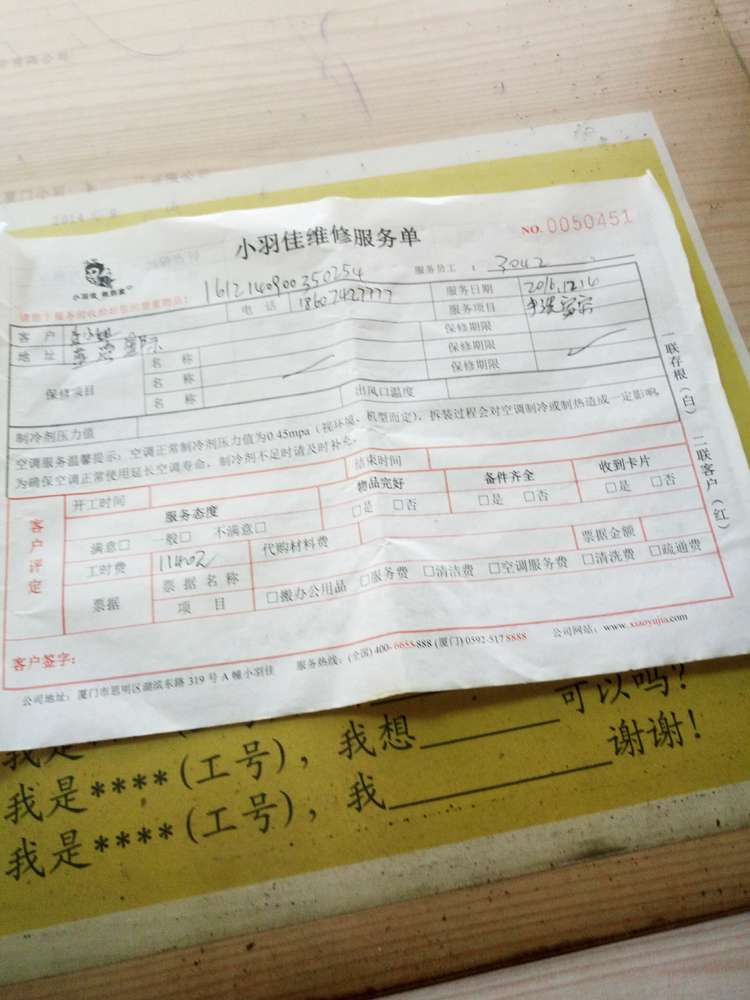 小羽佳维修服务单
NO. 0050451
小羽佳
161214090035​0254
服务员工 : 3042
请您于服务前收检好您的贵重物品!
客户
电话 18607427777
服务日期 2016.12.16
地址
服务项目
保修项目
名称
保修期限
名称
保修期限
名称
保修期限
制冷剂压力值
出风口温度
空调服务温馨提示:空调正常制冷剂压力值为0.45mpa(视环境、机型而定),拆装过程会对空调制冷或制热造成一定影响,
为确保空调正常使用延长空调寿命,制冷剂不足时请及时补充。
一联存根(白) 二联客户(红)
客户评定
开工时间
结束时间
服务态度
物品完好
备件齐全
收到卡片
满意□ 一般□ 不满意□
□是 □否
□是 □否
□是 □否
工时费
代购材料费
票据金额
票据
票据名称
项目
□搬办公用品 □服务费 □清洁费 □空调服务费 □清洗费 □疏通费
客户签字:
公司地址:厦门市思明区湖滨东路 319 号 A 幢小羽佳
服务热线:(全国) 400-6655-888 (厦门) 0592-517 8888
公司网站:www.xiaoyujia.com
我是****(工号),我想______可以吗?
我是****(工号),我__________谢谢!
我是****